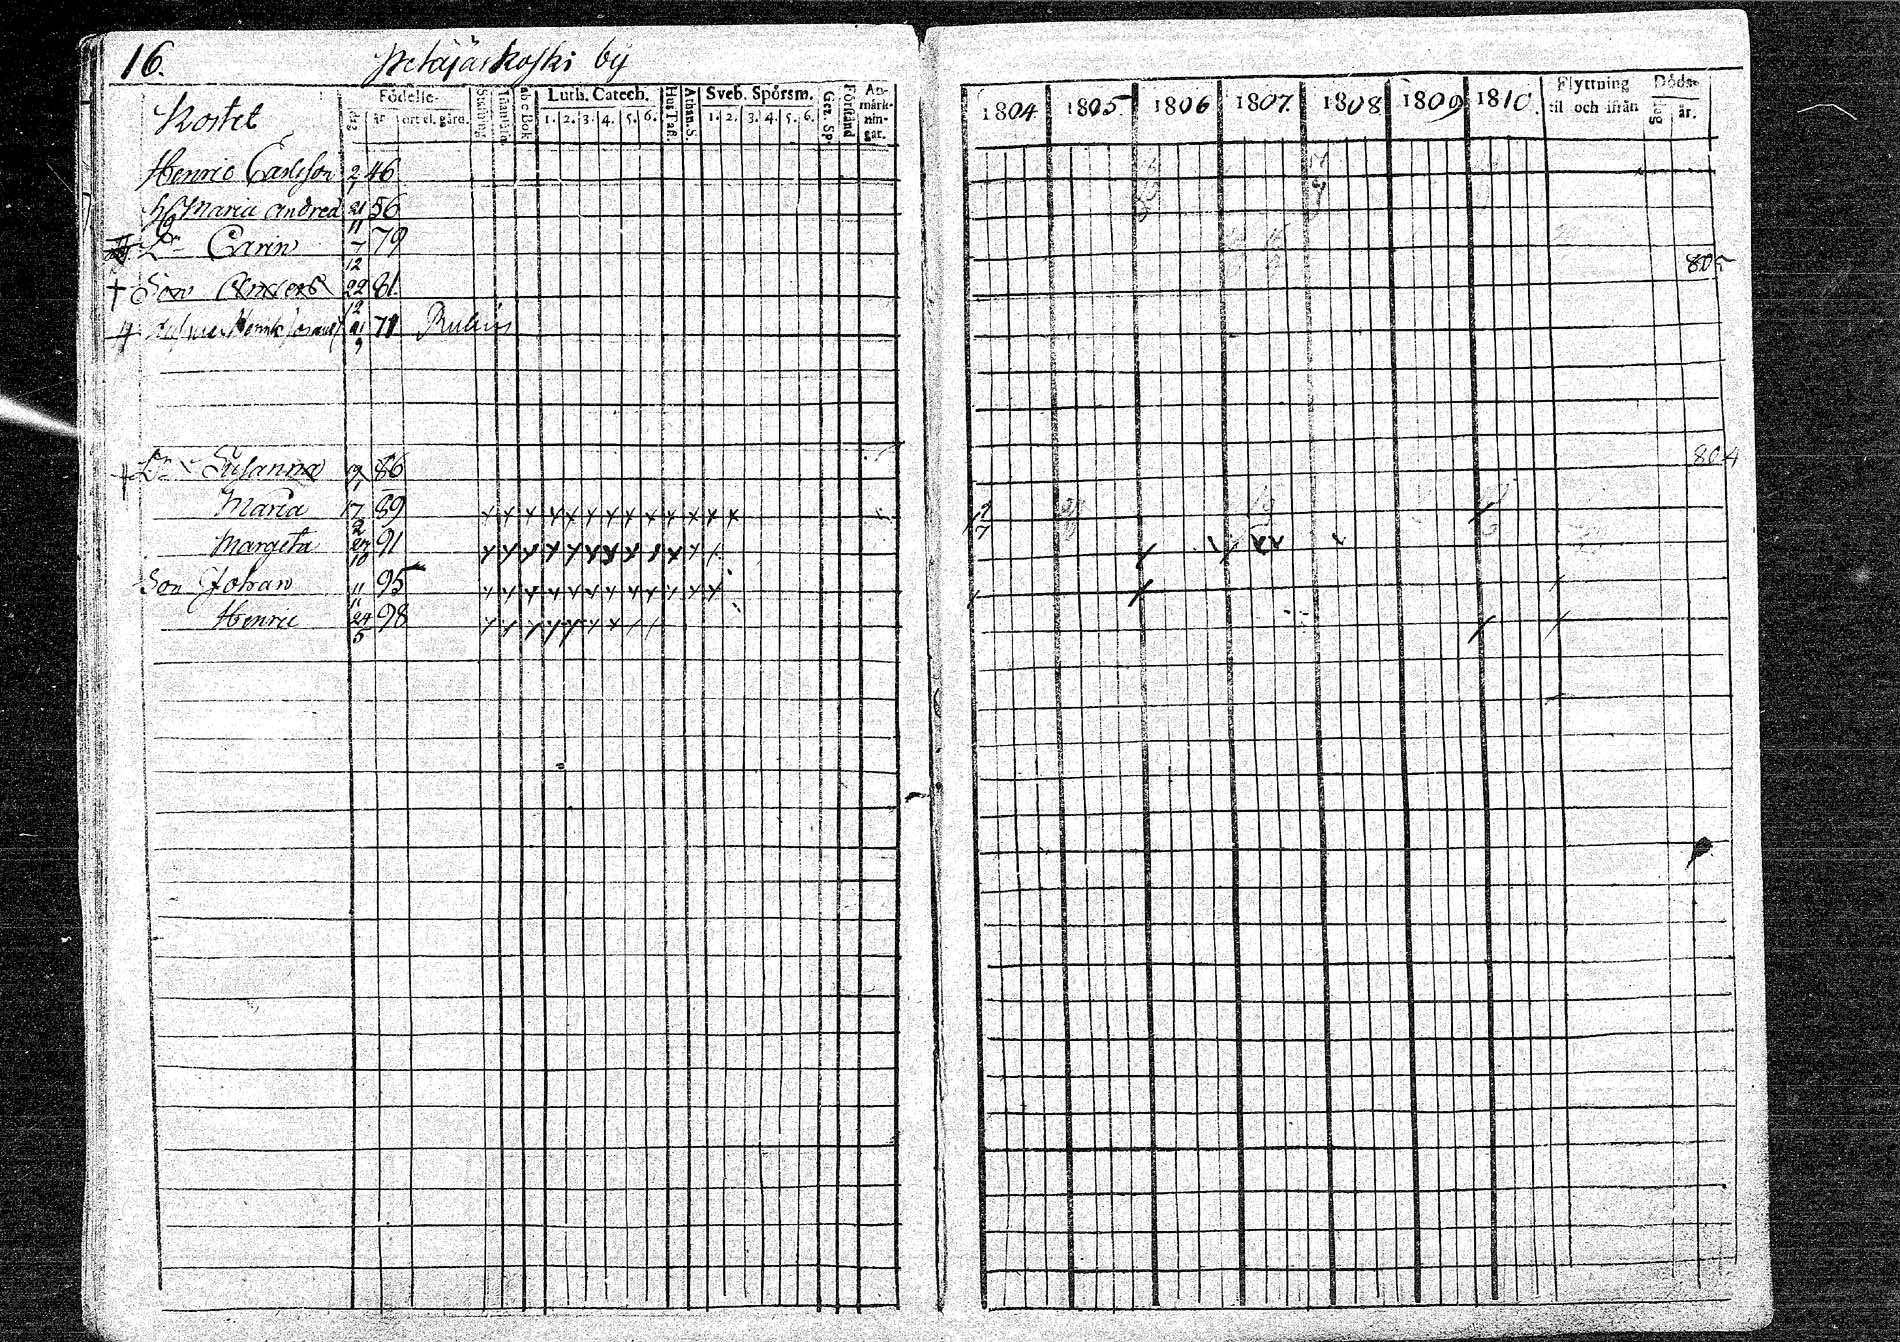 16. Petäjäskoski by
Kostet
Födelse-
dag år ort el. gård.
ab c Bok
Luth. Catech.
1. 2. 3. 4. 5. 6.
Hus Tafl.
Athan. S.
Sveb. Spörsm.
1. 2. 3. 4. 5. 6.
Gez. Sp.
Förstånd
An-
märk-
nin-
gar.
1804. 1805. 1806 1807. 1808 1809 1810.
Flyttning
til och ifrån
Döds-
dag år.
Henric Carlsson 2 46
Maria Andred 21/11 56
Dr Carin 7/12 79
Son Anders 22/12 81. 805
Henrik 21/9 71
Dr Susanna 86 804
Maria 17/2 89
Margeta 27/10 91
Son Johan 11/11 95
Henric 24/5 98